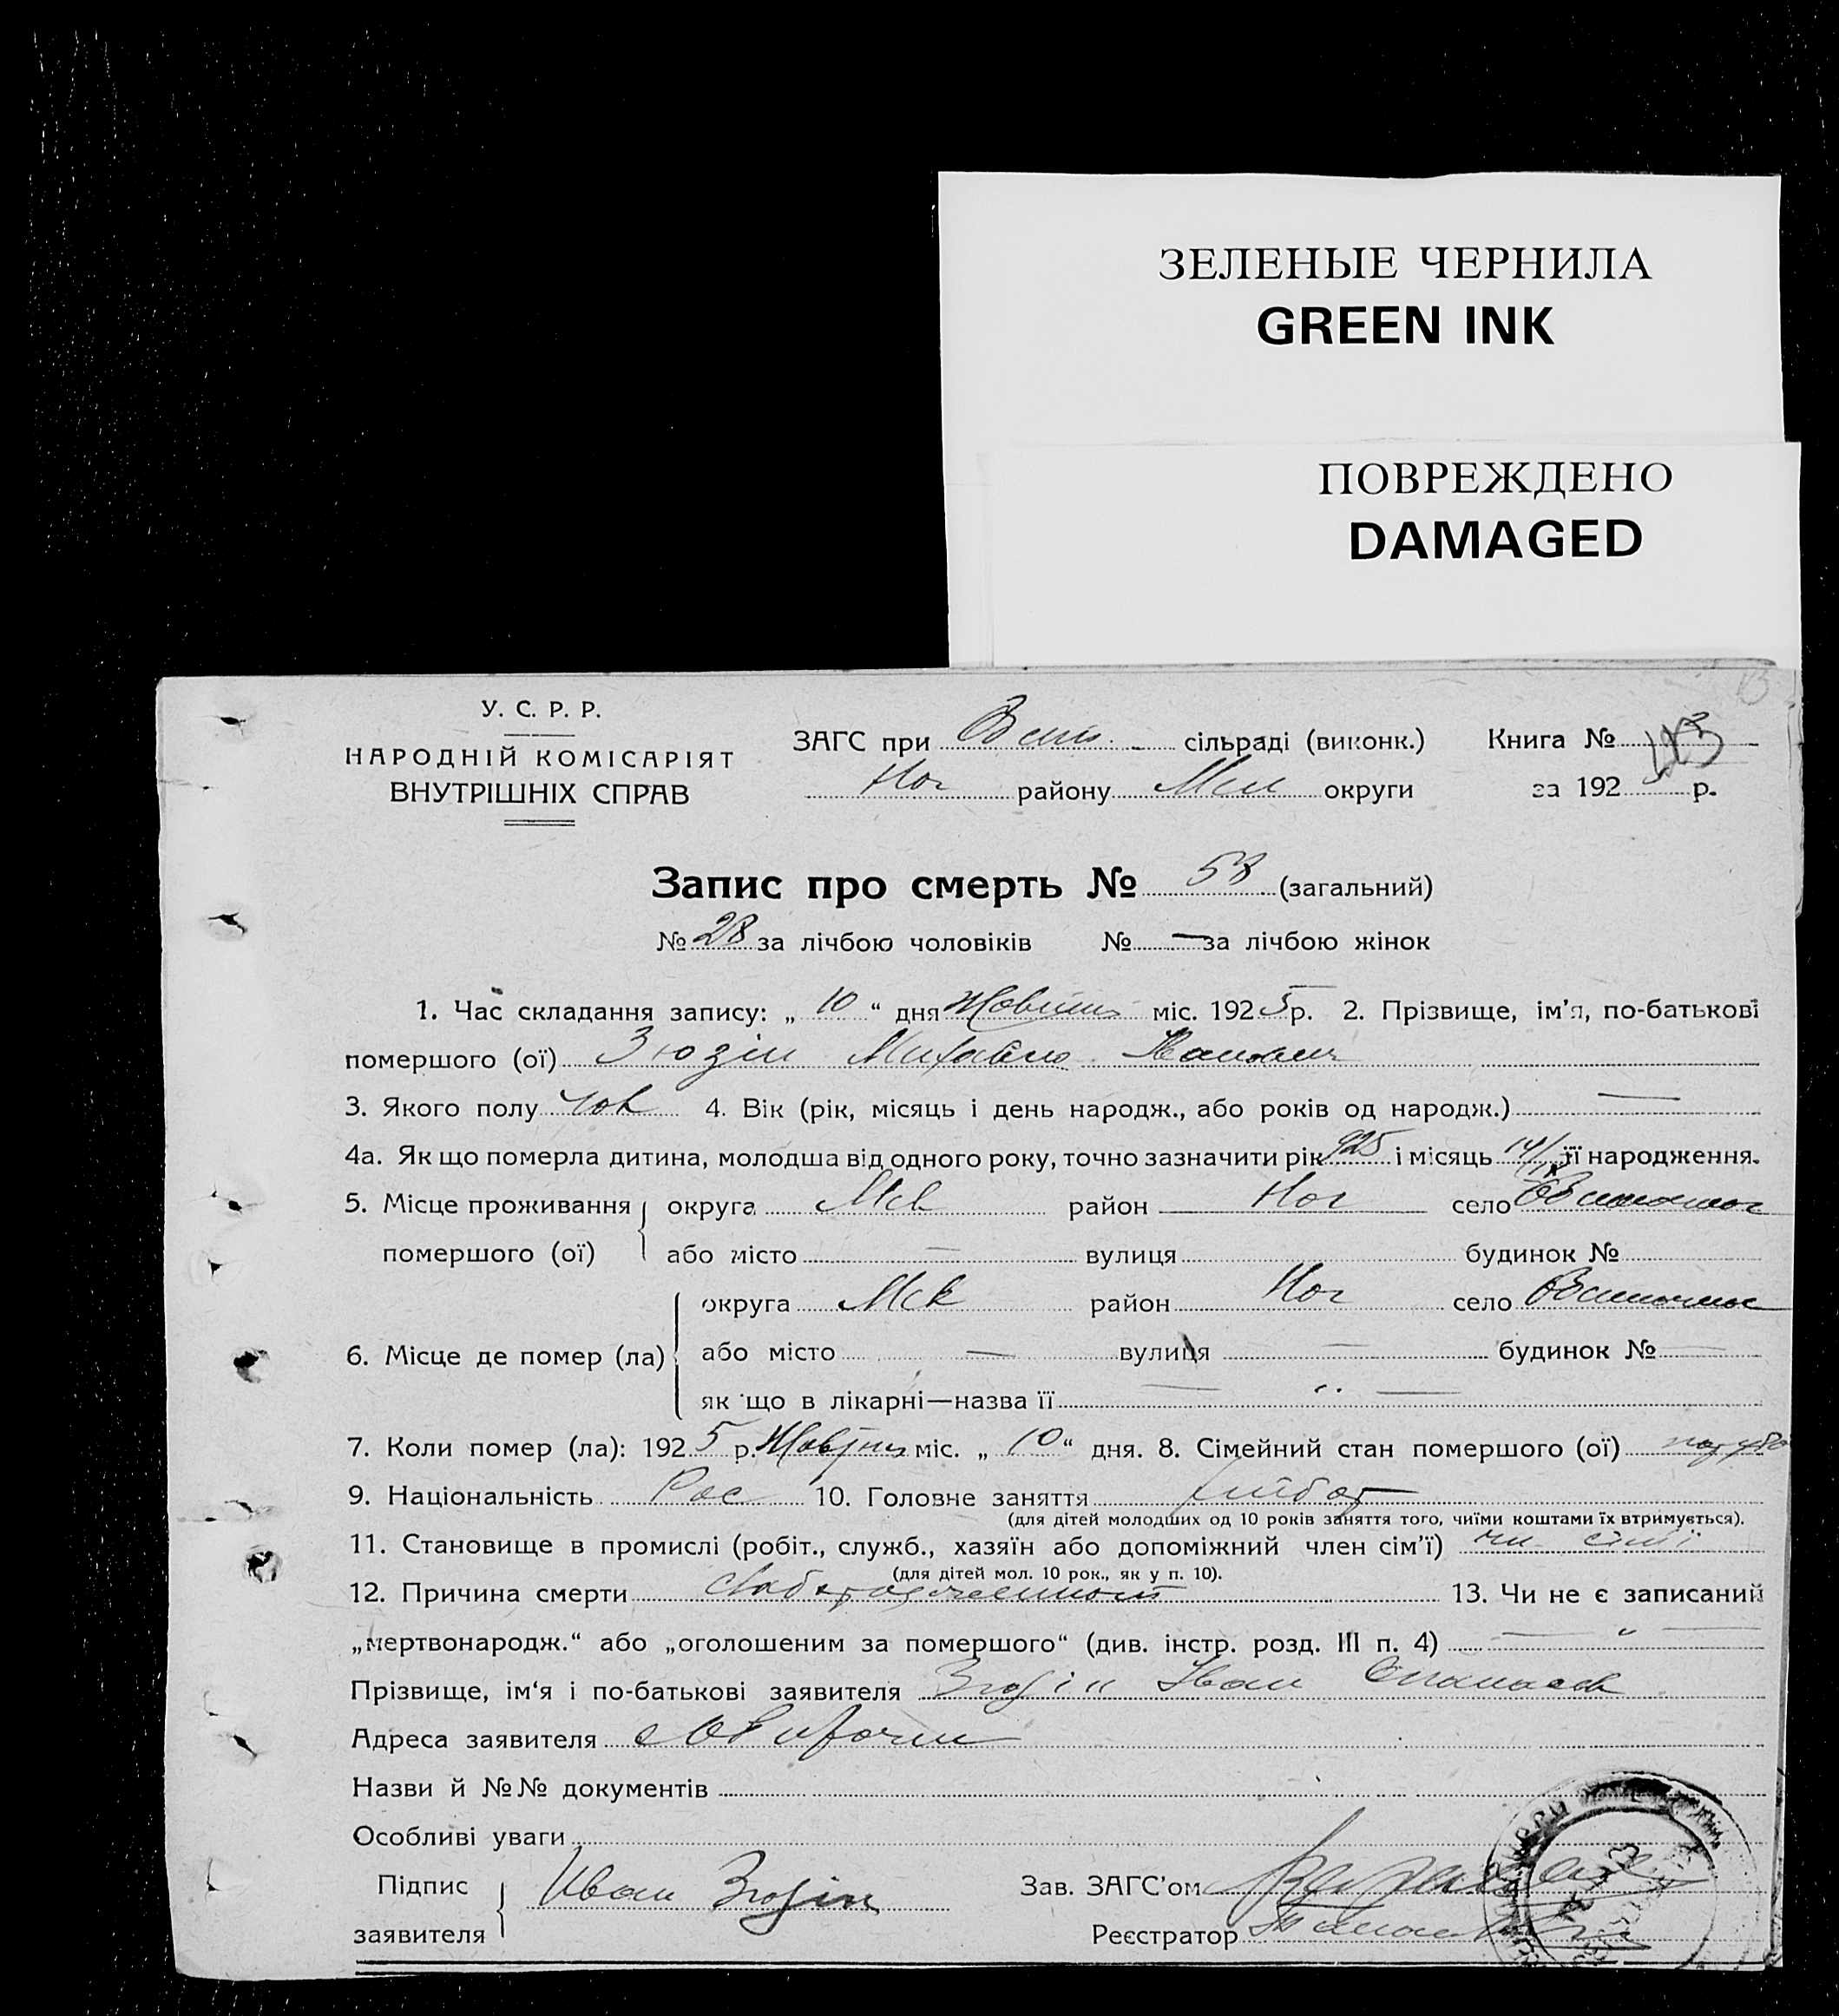 ЗЕЛЕНЫЕ ЧЕРНИЛА
GREEN INK
ПОВРЕЖДЕНО
DAMAGED
У. С. Р. Р.
НАРОДНІЙ КОМІСАРІЯТ
ВНУТРІШНІХ СПРАВ
ЗАГС при сільраді (виконк.) Книга №
Ног району округи за 192 5 р.
Запис про смерть № 58 (загальний)
№ 28 за лічбою чоловіків № — за лічбою жінок
1. Час складання запису: „ 10 “ дня Жовтня міс. 192 5 р. 2. Прізвище, ім'я, по-батькові
помершого (ої) Зюзін Михайло Іванович
3. Якого полу чов 4. Вік (рік, місяць і день народж., або років од народж.) —
4а. Як що померла дитина, молодша від одного року, точно зазначити рік 925 і місяць її народження.
5. Місце проживання помершого (ої) округа район Ног село
або місто — вулиця будинок №
6. Місце де помер (ла) округа район Ног село
або місто — вулиця — будинок № —
як що в лікарні—назва її — „ —
7. Коли помер (ла): 192 5 р. Жовтня міс. „ 10 “ дня. 8. Сімейний стан помершого (ої)
9. Національність Рос 10. Головне заняття хлібор
(для дітей молодших од 10 років заняття того, чиїми коштами їх втримується).
11. Становище в промислі (робіт., служб., хазяїн або допоміжний член сім'ї) чл сімї
(для дітей мол. 10 рок., як у п. 10).
12. Причина смерти 13. Чи не є записаний
„мертвонародж.“ або „оголошеним за помершого“ (див. інстр. розд. III п. 4) — „ —
Прізвище, ім'я і по-батькові заявителя Зюзін Іван
Адреса заявителя
Назви й №№ документів
Особливі уваги
Підпис заявителя Иван Зюзін Зав. ЗАГС'ом
Реєстратор